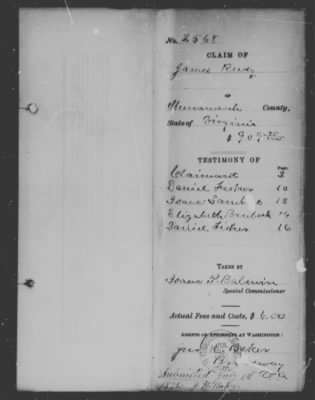 No. 2568
CLAIM OF
James Rudy
OF
Shenandoah County,
State of Virginia
$ 909
TESTIMONY OF
Page.
Claimant 3
Daniel Fisher 10
Isaac Lamb 13
Elizabeth 14
Daniel Fisher 16
TAKEN BY
Isaac P. Baldwin
Special Commissioner
Actual Fees and Costs, $ 6.00
AGENTS OR ATTORNEYS AT WASHINGTON:
Jno. K.
Submitted July 18